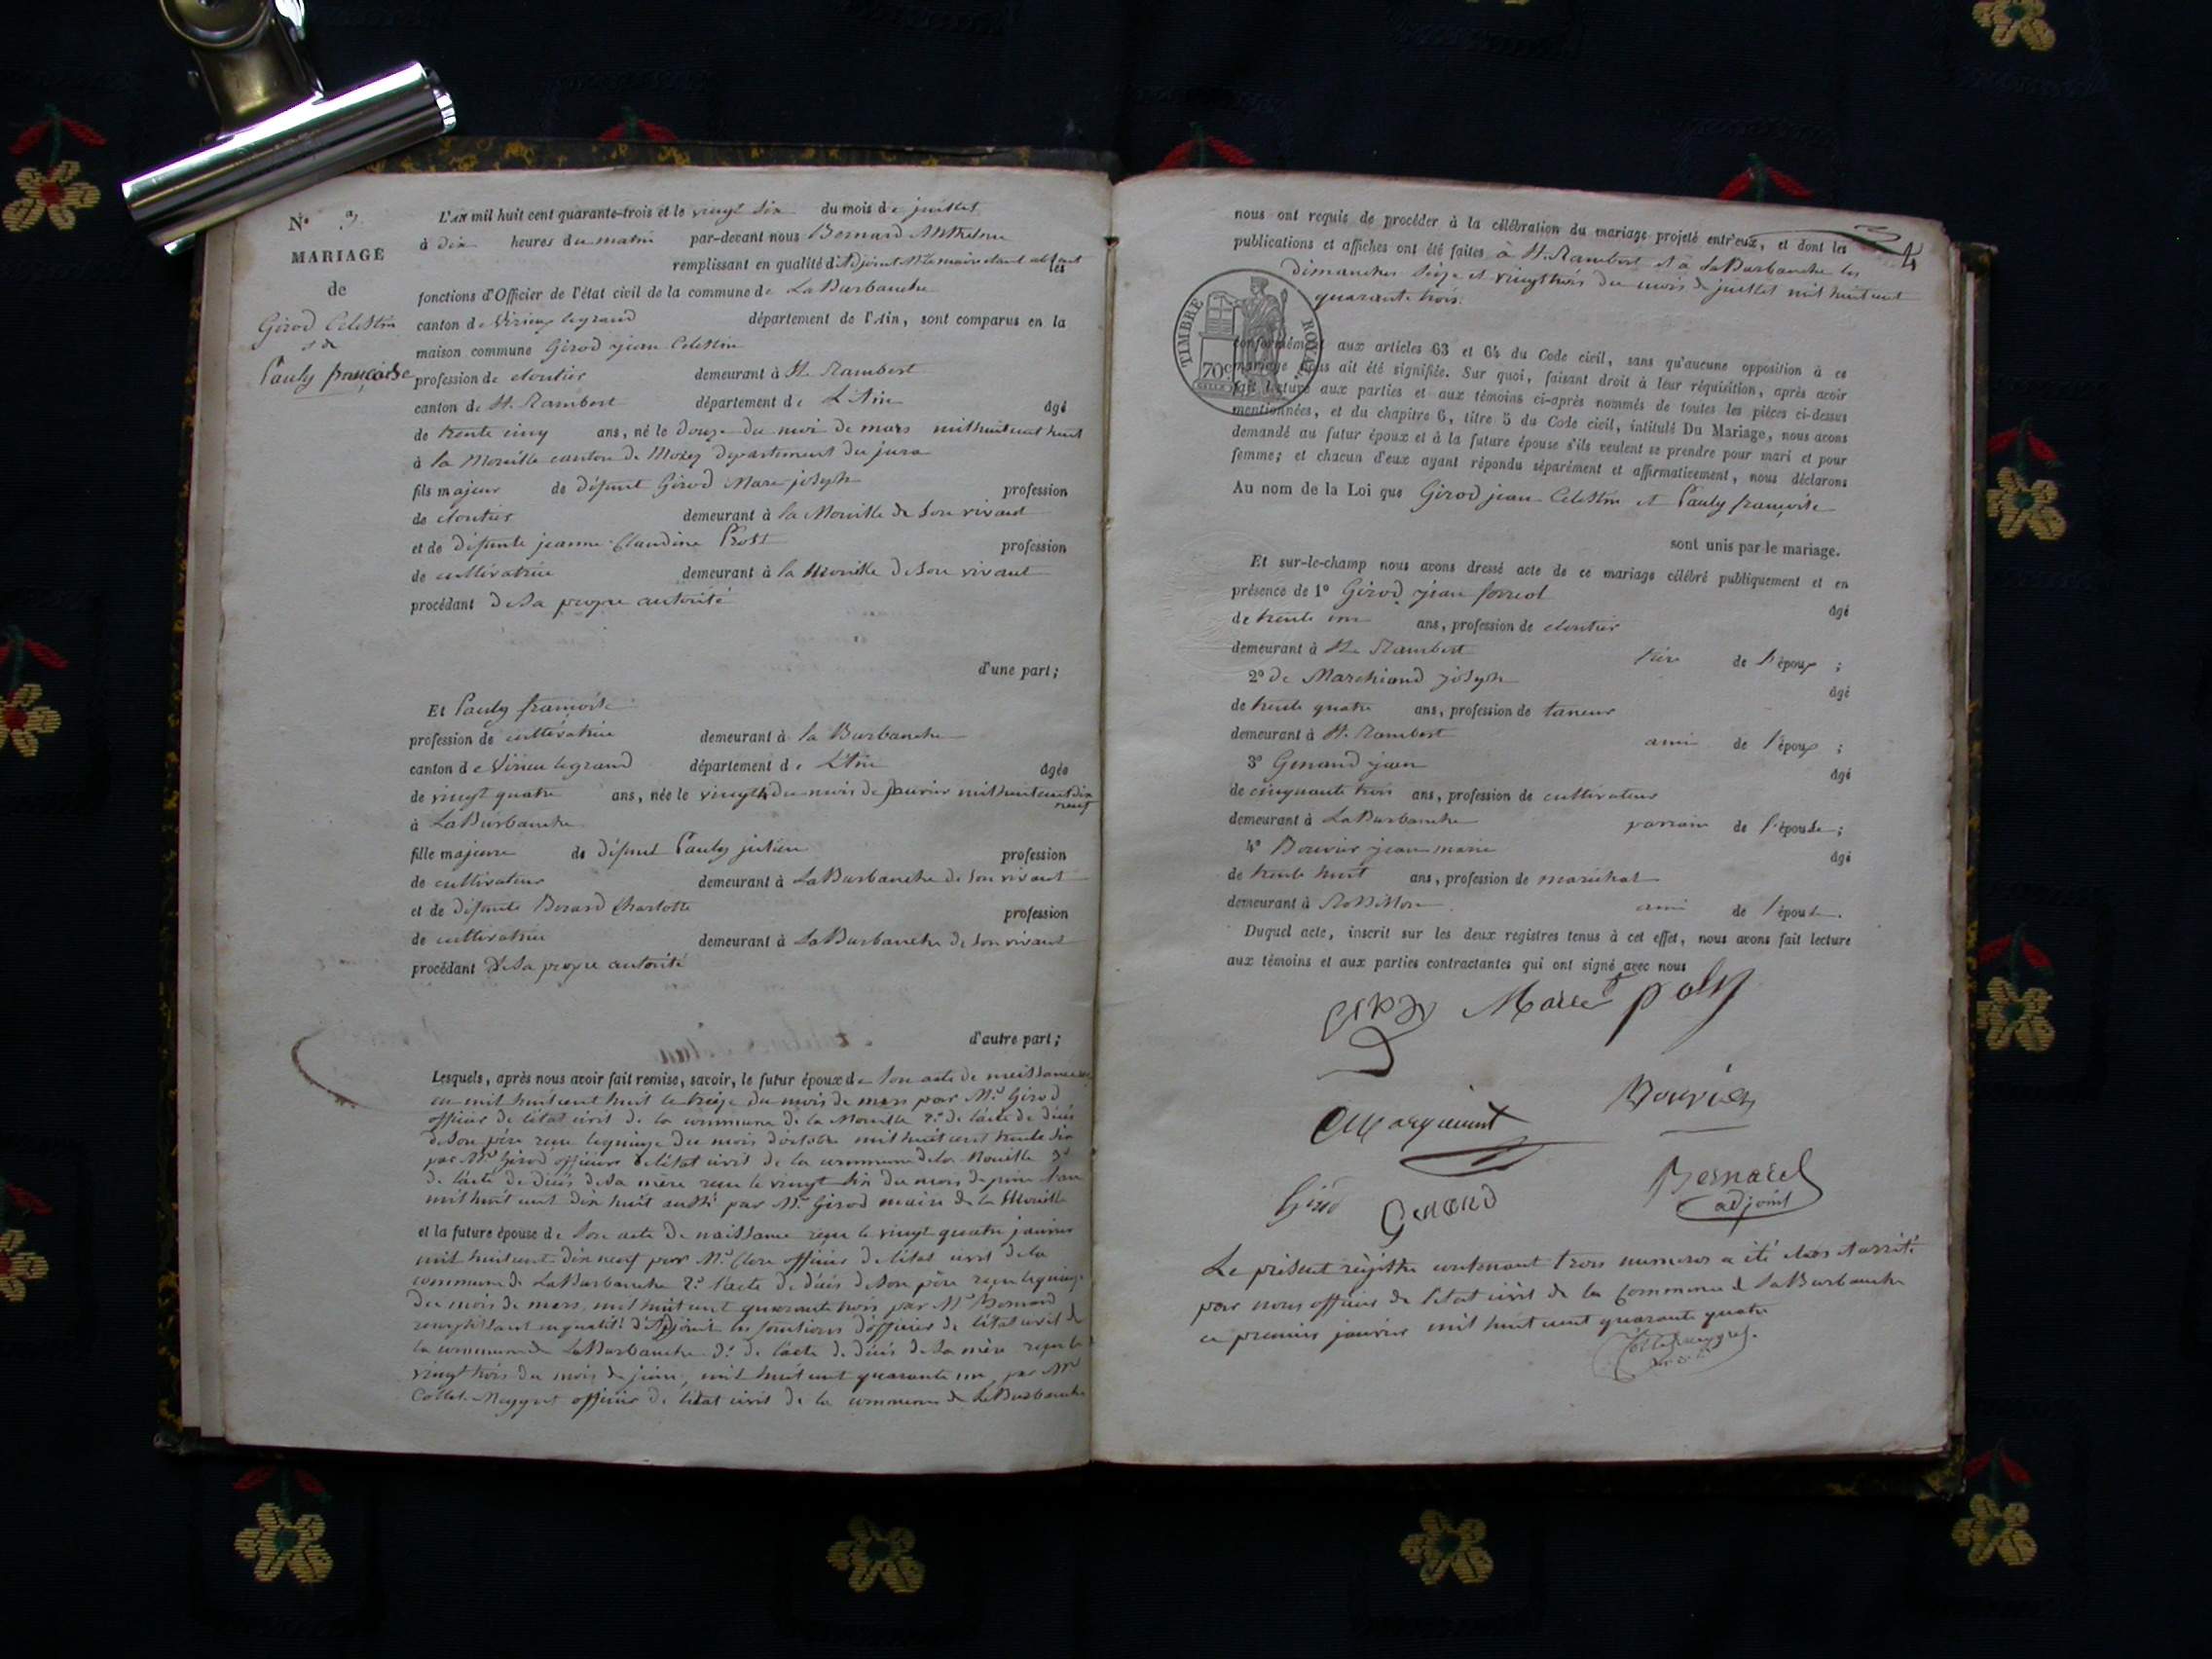 N° 3
MARIAGE
de
Girod Celestin
et de
Pauly françoise
L'an mil huit cent quarante-trois et le vingt six du mois de juillet
à dix heures du matin par-devant nous Bernard Anthelme
remplissant en qualité d'Adjoint Mr le maire étant absent les
fonctions d'Officier de l'état civil de la commune de La Burbanche
canton de Virieu legrand département de l'Ain, sont comparus en la
maison commune Girod jean Celestin
profession de cloutier demeurant à St. Rambert
canton de St. Rambert département de L'Ain âgé
de trente cinq ans, né le douze du moi de mars mil huit cent huit
à la Mouille canton de Morez département du jura
fils majeur de défunt Girod Marc joseph profession
de cloutier demeurant à la Mouille de son vivant
et de défunte jeanne Claudine Prost profession
de cultivatrice demeurant à la Mouille de son vivant
procédant de sa propre autorité
d'une part;
Et Pauly françoise
profession de cultivatrice demeurant à la Burbanche
canton de Virieu legrand département de L'Ain âgée
de vingt quatre ans, née le vingt du mois de janvier mil huit cent dix neuf
à La Burbanche
fille majeure de défunt Pauly julien profession
de cultivateur demeurant à La Burbanche de son vivant
et de défunte Berard Charlotte profession
de cultivatrice demeurant à La Burbanche de son vivant
procédant de sa propre autorité
d'autre part;
Lesquels, après nous avoir fait remise, savoir, le futur époux de son acte de naissance
en mil huit cent huit le treize du mois de mars par Mr Girod
officier de l'état civil de la commune de la Mouille 2° de l'acte de décès
de son père reçu le quinze du mois d'octobre mil huit cent trente six
par Mr Girod officier de l'état civil de la commune de la Mouille 3°
de l'acte de décès de sa mère reçu le vingt six du mois de juin l'an
mil huit cent dix huit aussi par Mr Girod maire de la Mouille
et la future épouse de son acte de naissance reçu le vingt quatre janvier
mil huit cent dix neuf par Mr Clerc officier de l'état civil de la
commune de La Burbanche 2° l'acte de décès de son père reçu le quinze
du mois de mars, mil huit cent quarante trois par Mr Bernard
remplissant en qualité d'Adjoint les fonctions d'officier de l'état civil de
la commune de La Burbanche 3° de l'acte de décès de sa mère reçu le
vingt trois du mois de juin, mil huit cent quarante un, par Mr
Collet-Meygret officier de l'état civil de la commune de La Burbanche
4
nous ont requis de procéder à la célébration du mariage projeté entr'eux, et dont les
publications et affiches ont été faites à St. Rambert et à La Burbanche les
dimanches seize et vingt trois du mois de juillet mil huit cent
quarante trois.
TIMBRE ROYAL
70c
conformément aux articles 63 et 64 du Code civil, sans qu'aucune opposition à ce
mariage nous ait été signifiée. Sur quoi, faisant droit à leur réquisition, après avoir
fait lecture aux parties et aux témoins ci-après nommés de toutes les pièces ci-dessus
mentionnées, et du chapitre 6, titre 5 du Code civil, intitulé Du Mariage, nous avons
demandé au futur époux et à la future épouse s'ils veulent se prendre pour mari et pour
femme; et chacun d'eux ayant répondu séparément et affirmativement, nous déclarons
Au nom de la Loi que Girod jean Celestin et Pauly françoise
sont unis par le mariage.
Et sur-le-champ nous avons dressé acte de ce mariage célébré publiquement et en
présence de 1° Girod jean ferreol âgé
de trente un ans, profession de cloutier
demeurant à St. Rambert frère de l'époux;
2° de Marchiand joseph âgé
de trente quatre ans, profession de taneur
demeurant à St. Rambert ami de l'époux;
3° Genand jean âgé
de cinquante trois ans, profession de cultivateur
demeurant à La Burbanche parrain de l'épouse;
4° Bouvier jean marie âgé
de trente huit ans, profession de maréchal
demeurant à Rossillon ami de l'épouse.
Duquel acte, inscrit sur les deux registres tenus à cet effet, nous avons fait lecture
aux témoins et aux parties contractantes qui ont signé avec nous
poly
Bouvier
Girod Genand
Bernard
adjoint
Le présent régistre contenant trois numeros a été clos et arrêté
par nous officier de l'état civil de la Commune de La Burbanche
ce premier janvier mil huit cent quarante quatre
Collet Meygret